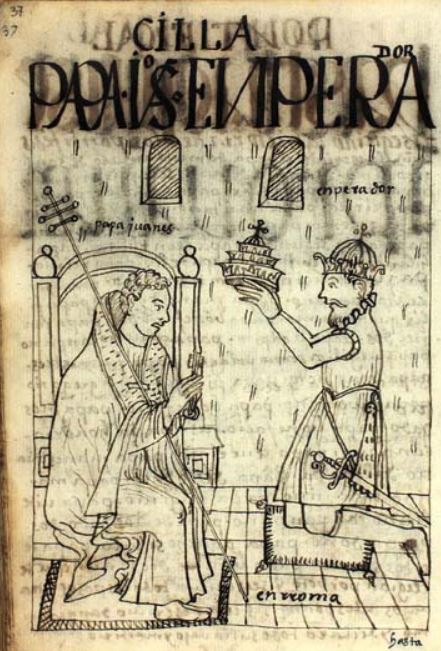 37
37
CILLA
PAPA·IoS·ENPERA
DOR
enperador
papa juanes
en rroma
hasta